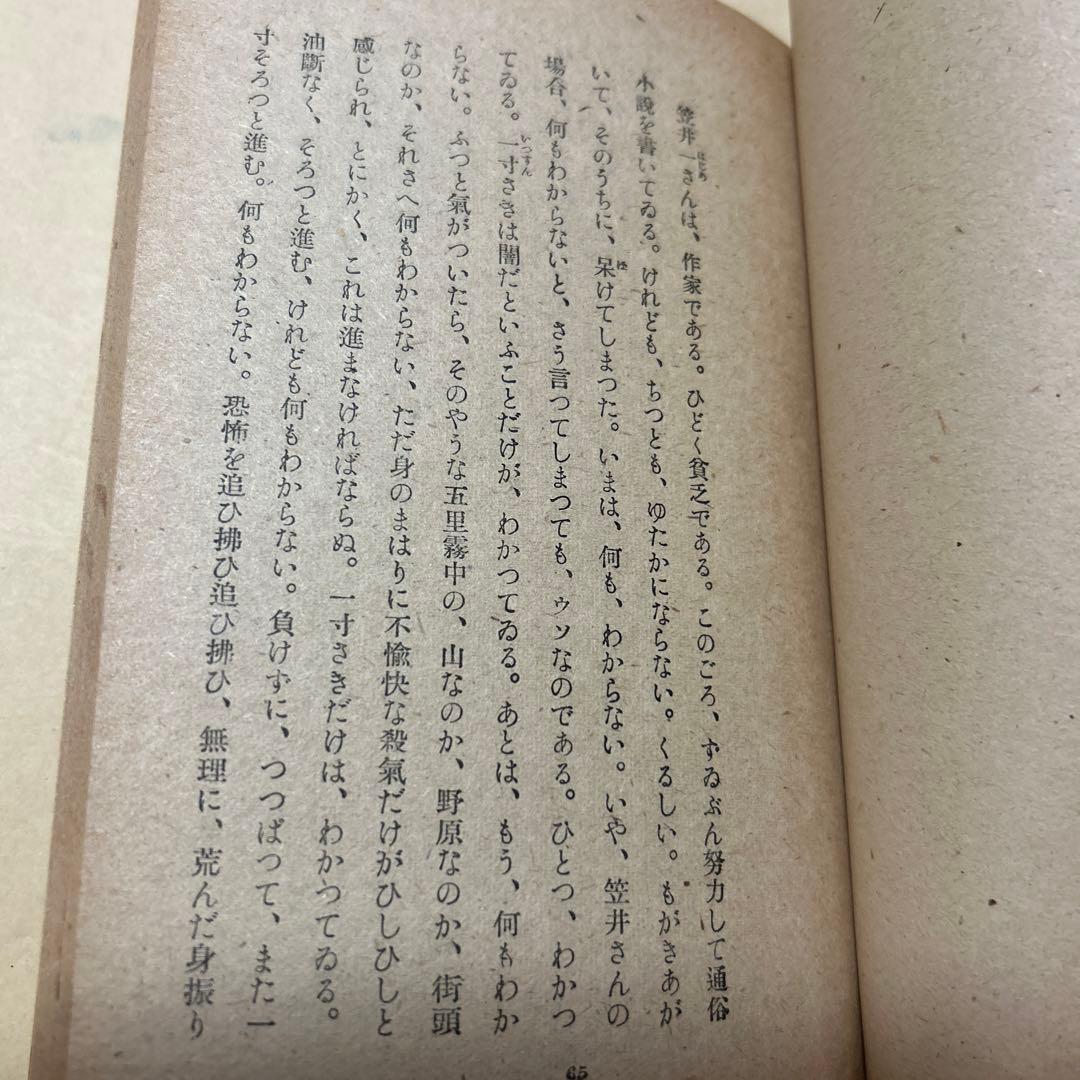 笠井一さんは、作家である。ひどく貧乏である。このごろ、ずゐぶん努力して通俗
はじめ
小説を書いてゐる。けれども、ちつとも、ゆたかにならない。くるしい。もがきあが
いて、そのうちに、呆けてしまつた。いまは、何も、わからない。いや、笠井さんの
ぼ
場合、何もわからないと、さう言つてしまつても、ウソなのである。ひとつ、わかつ
てゐる。一寸さきは闇だといふことだけが、わかつてゐる。あとは、もう、何もわか
いつすん
らない。ふつと氣がついたら、そのやうな五里霧中の、山なのか、野原なのか、街頭
なのか、それさへ何もわからない、ただ身のまはりに不愉快な殺氣だけがひしひしと
感じられ、とにかく、これは進まなければならぬ。一寸さきだけは、わかつてゐる。
油斷なく、そろつと進む、けれども何もわからない。負けずに、つつぱつて、また一
寸そろつと進む。何もわからない。恐怖を追ひ拂ひ追ひ拂ひ、無理に、荒んだ身振り
65